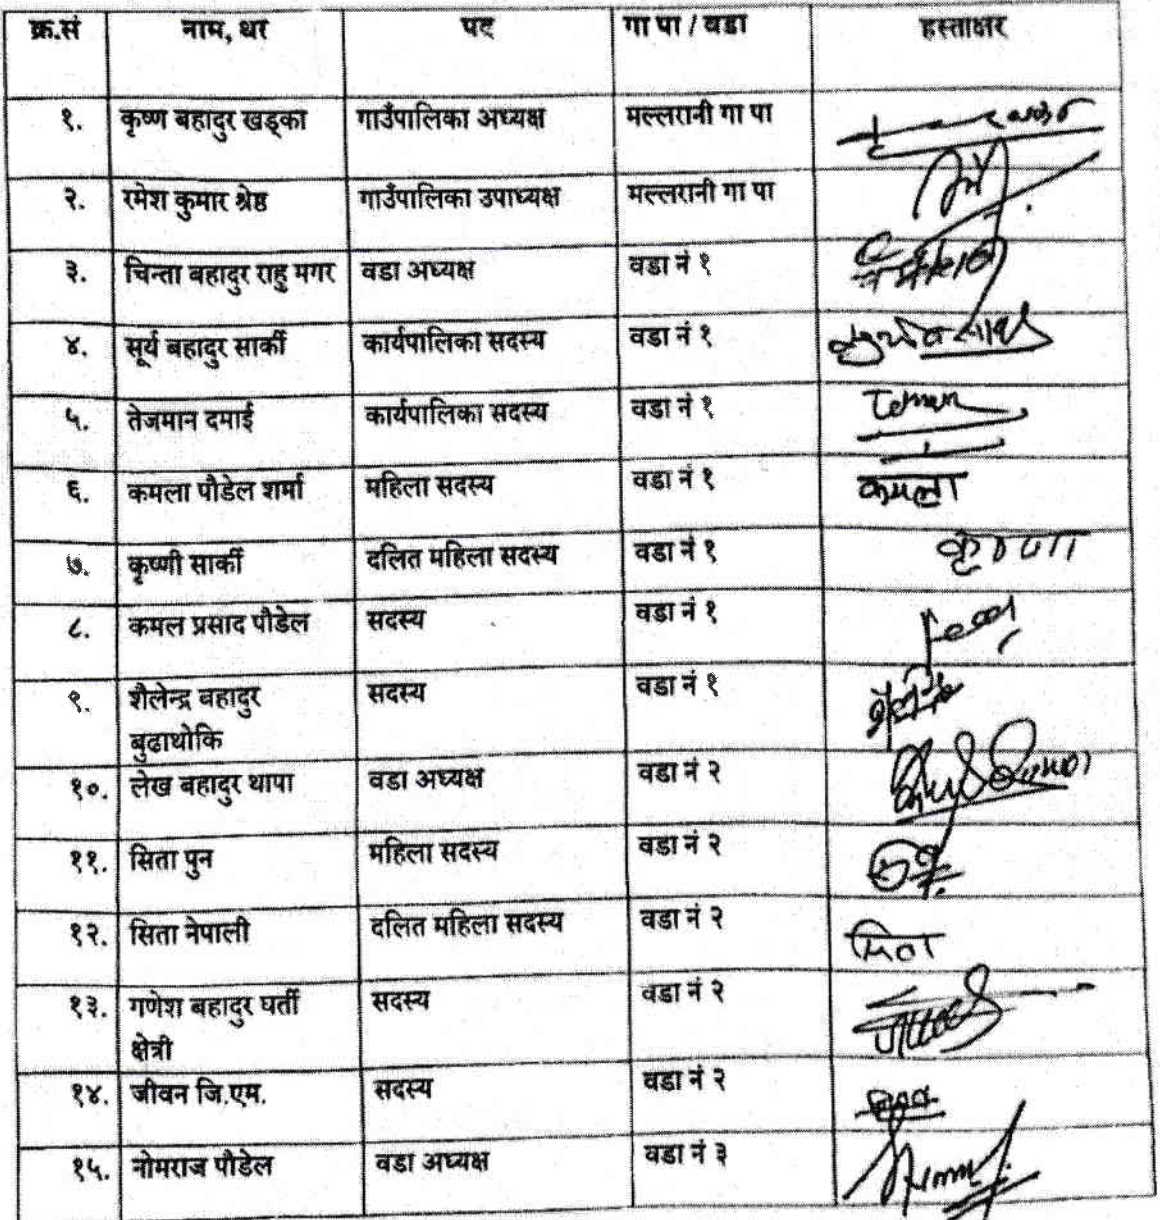 क्र.सं नाम, थर पद गा पा / वडा हस्ताक्षर
१. कृष्ण बहादुर खड्का गाउँपालिका अध्यक्ष मल्लरानी गा पा
२. रमेश कुमार श्रेष्ठ गाउँपालिका उपाध्यक्ष मल्लरानी गा पा
३. चिन्ता बहादुर राहु मगर वडा अध्यक्ष वडा नं १
४. सूर्य बहादुर सार्की कार्यपालिका सदस्य वडा नं १
५. तेजमान दमाई कार्यपालिका सदस्य वडा नं १
६. कमला पौडेल शर्मा महिला सदस्य वडा नं १ कमला
७. कृष्णी सार्की दलित महिला सदस्य वडा नं १
८. कमल प्रसाद पौडेल सदस्य वडा नं १
९. शैलेन्द्र बहादुर सदस्य वडा नं १
बुढाथोकि
१०. लेख बहादुर थापा वडा अध्यक्ष वडा नं २
११. सिता पुन महिला सदस्य वडा नं २
१२. सिता नेपाली दलित महिला सदस्य वडा नं २
१३. गणेश बहादुर घर्ती सदस्य वडा नं २
क्षेत्री
१४. जीवन जि.एम. सदस्य वडा नं २
१५. नोमराज पौडेल वडा अध्यक्ष वडा नं ३